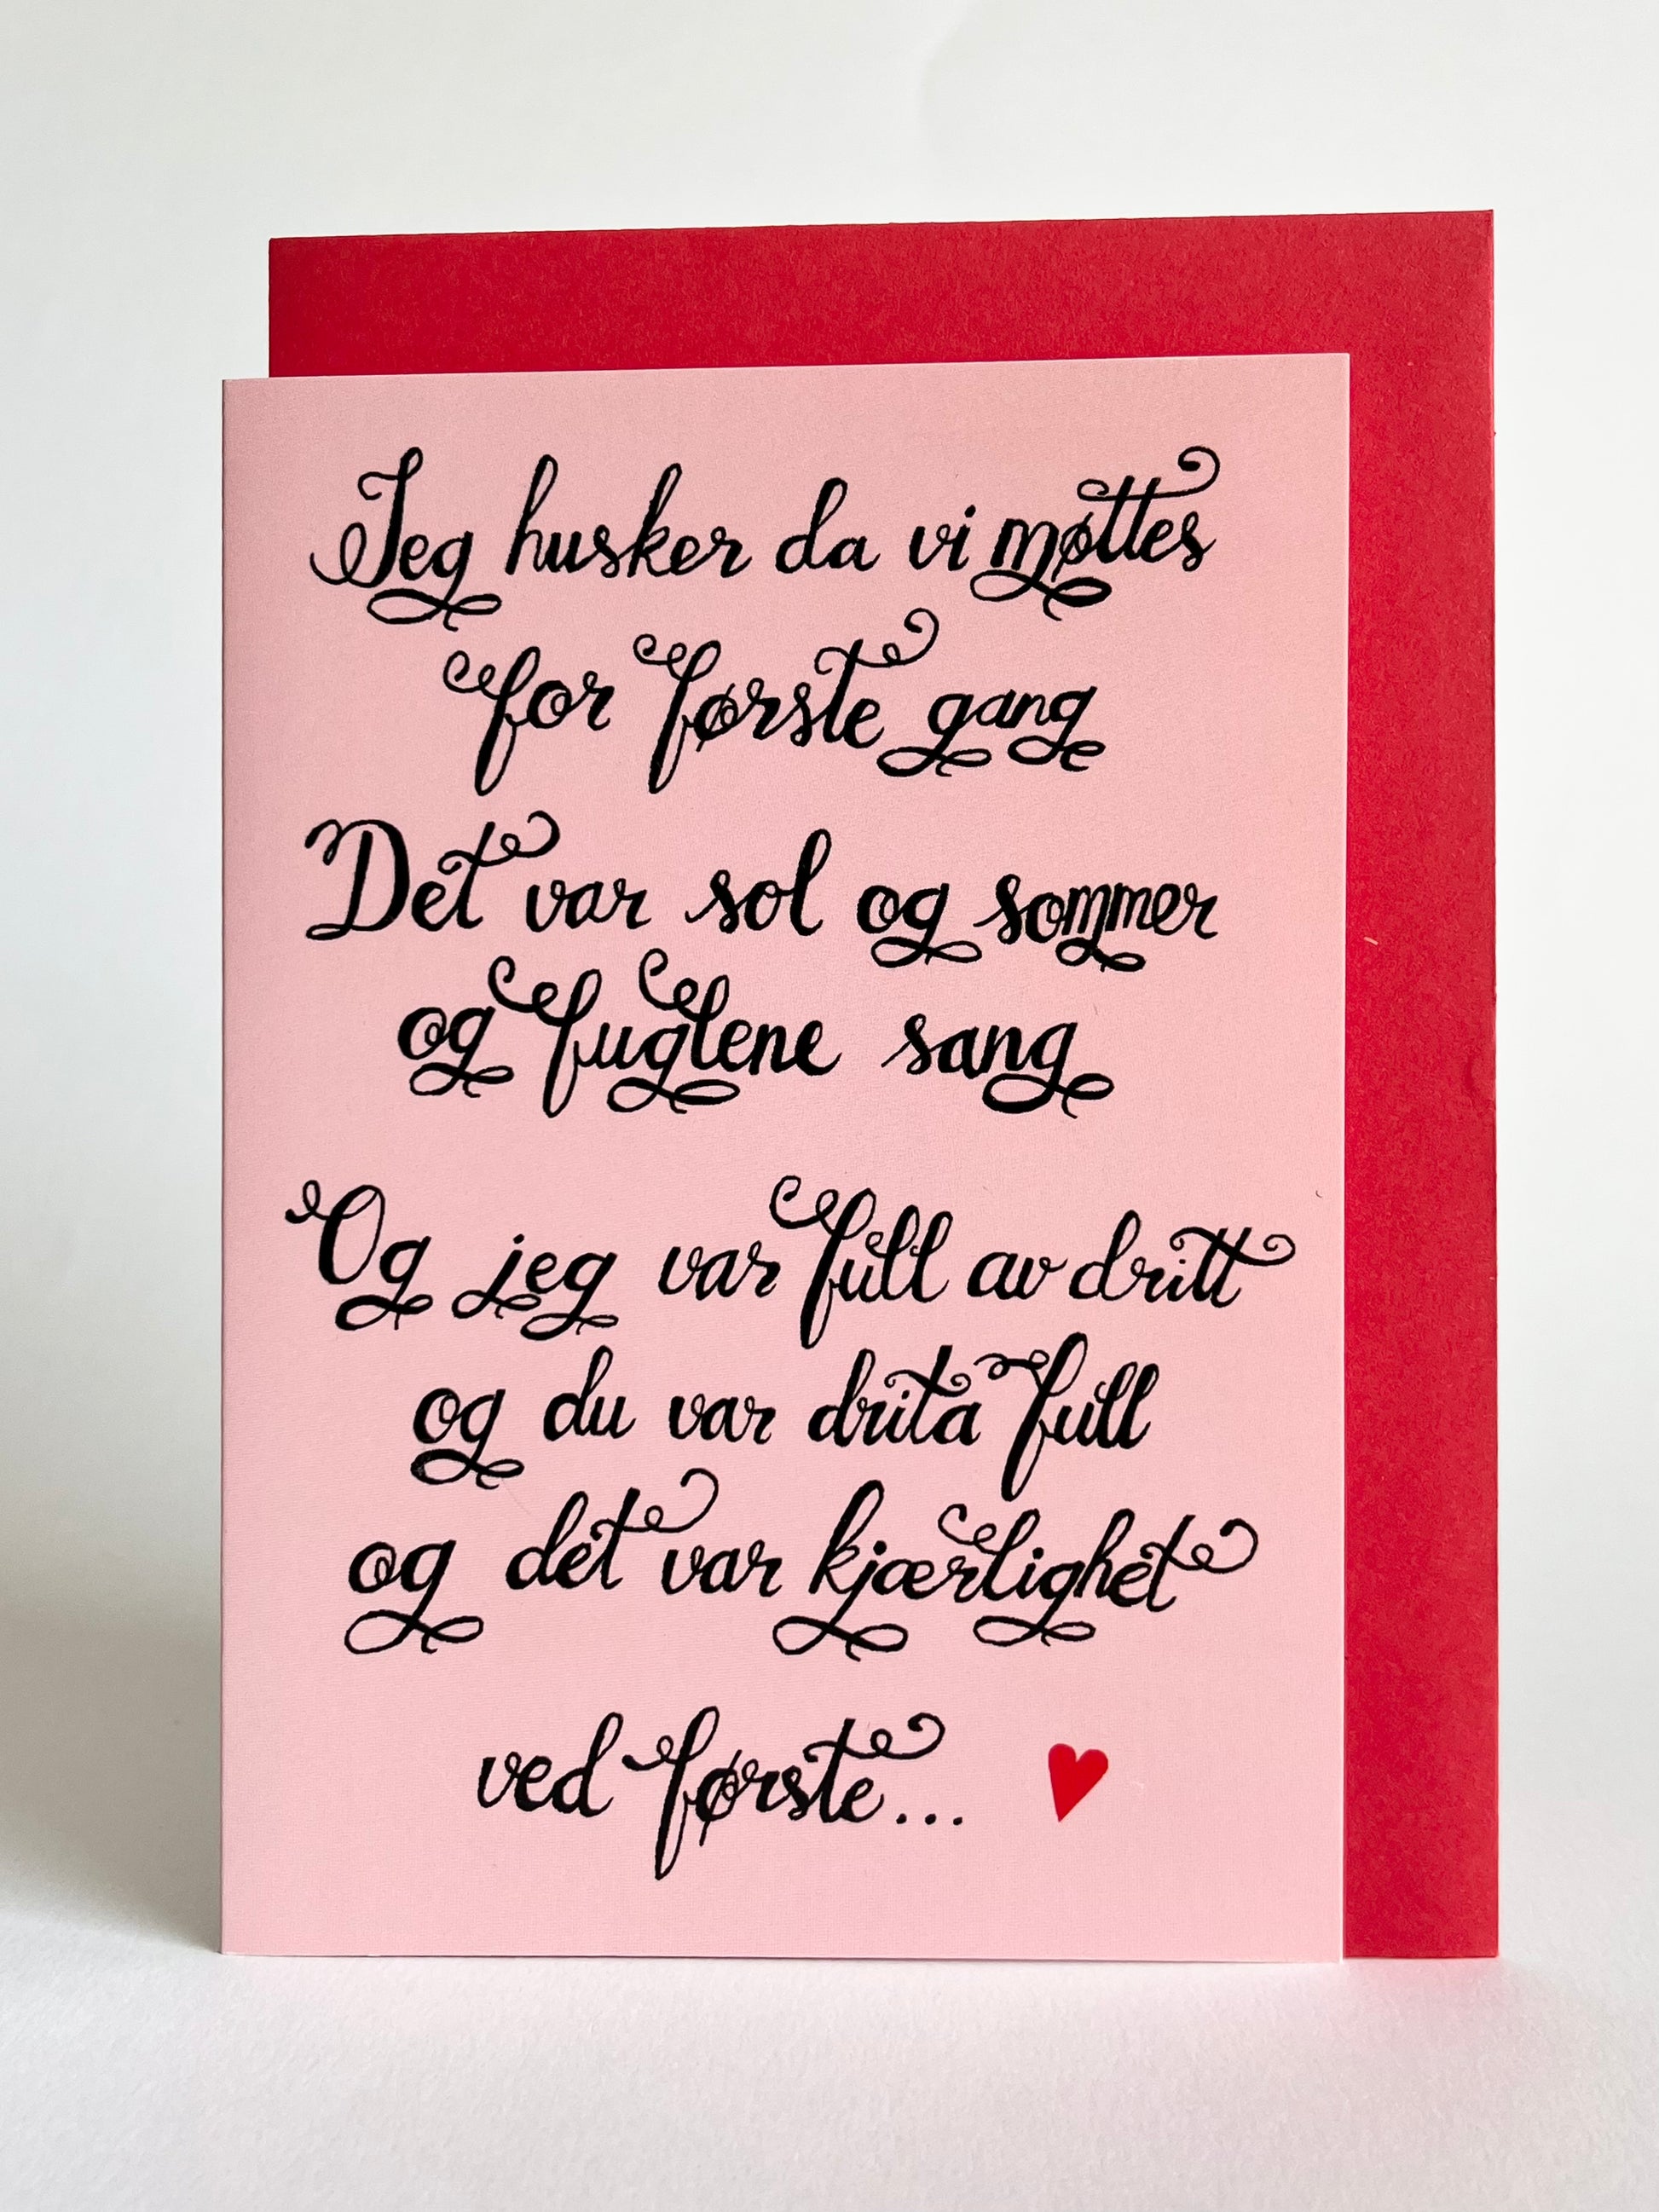 Jeg husker da vi møttes
for første gang
Det var sol og sommer
og fuglene sang
Og jeg var full av dritt
og du var drita full
og det var kjærlighet
ved første...